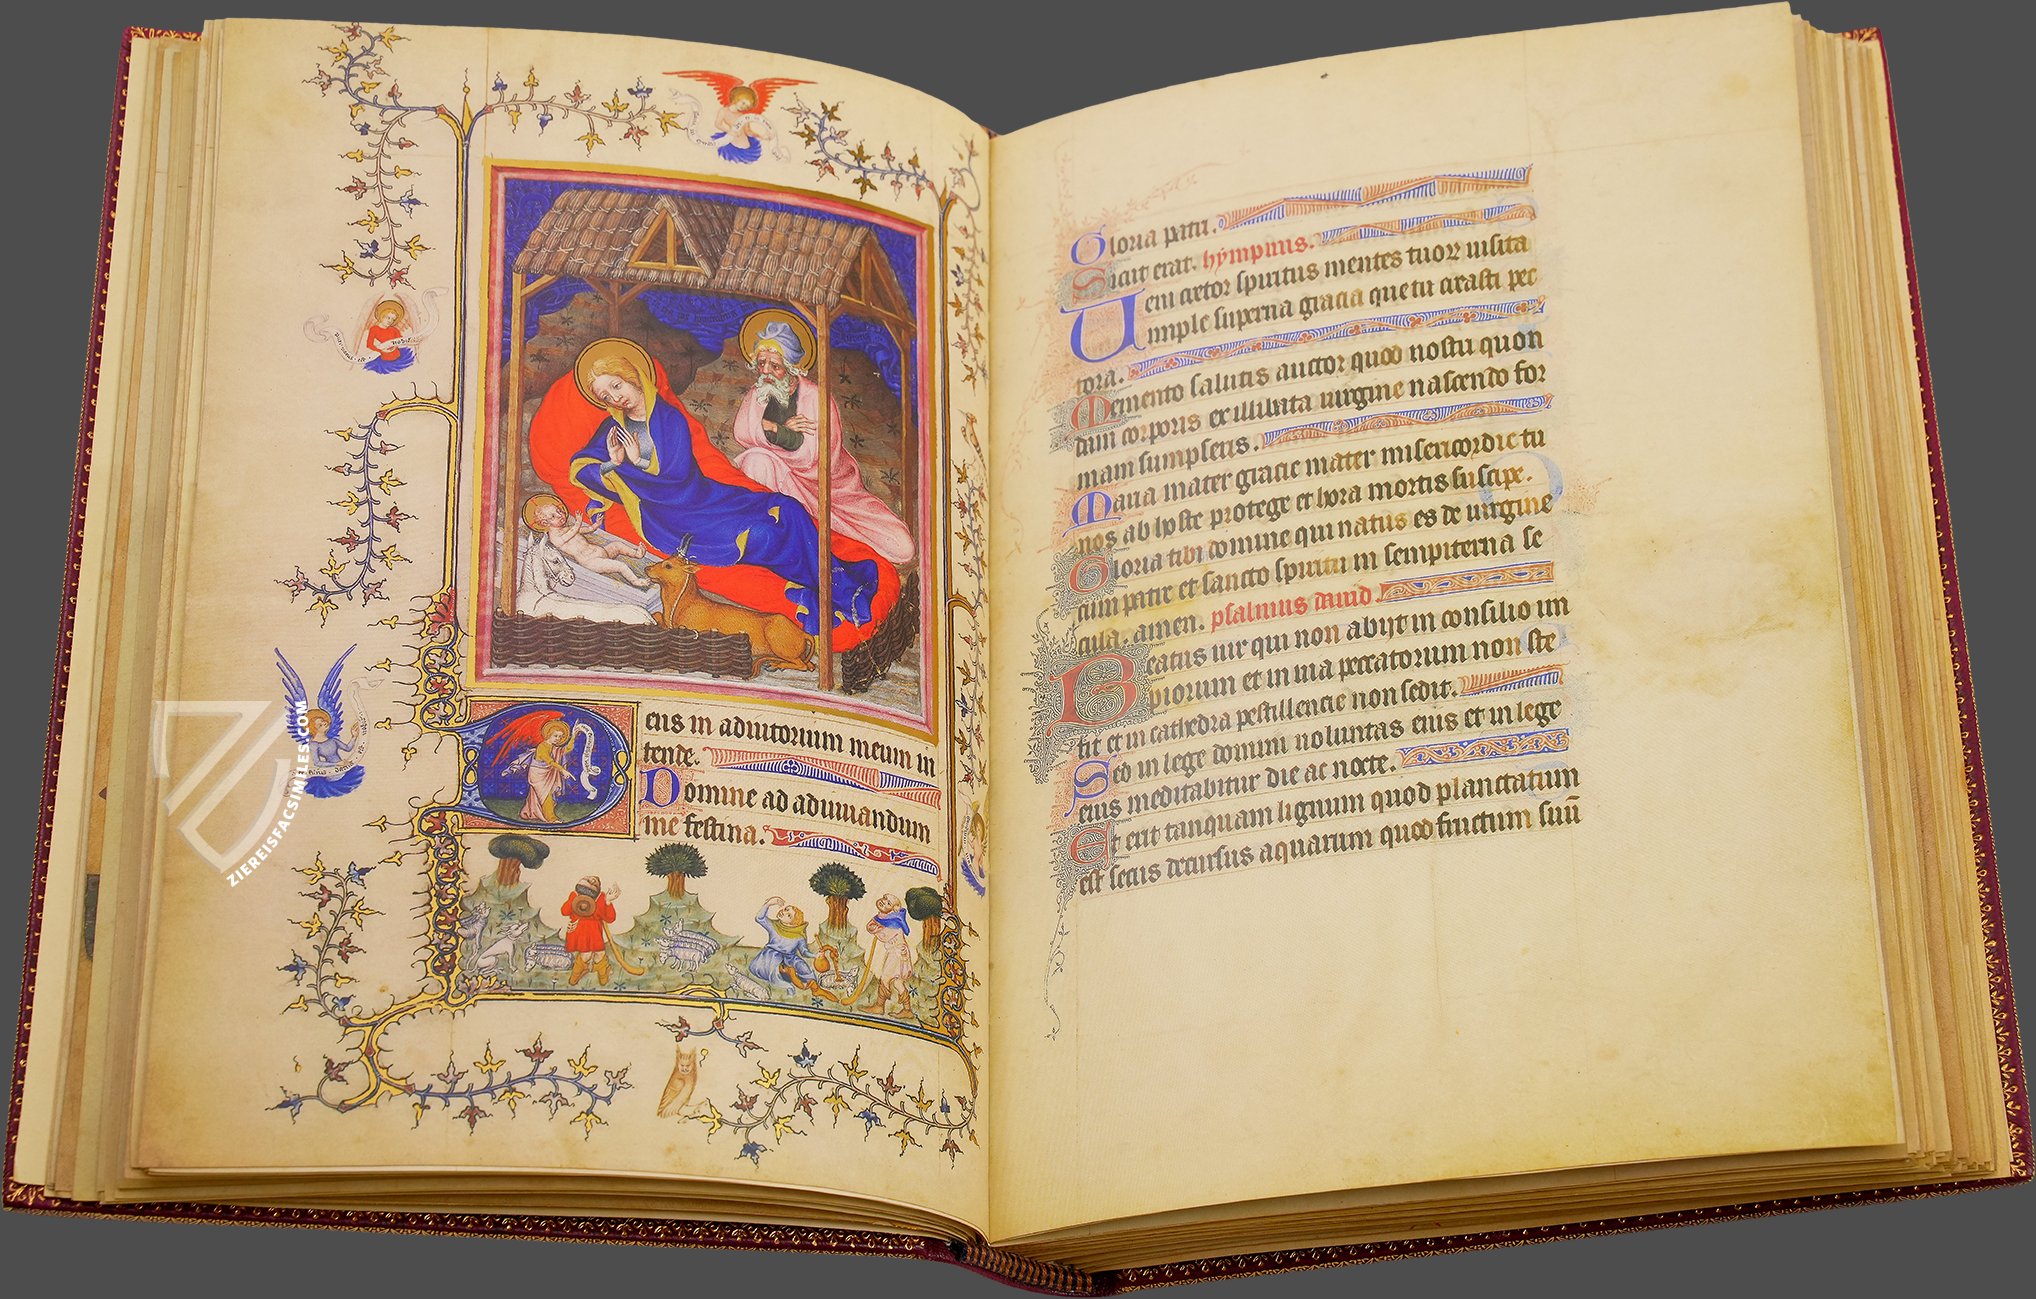 eus in adiutorium meum in
tende.
Domine ad adiuuandum
me festina.
Gloria patri.
Sicut erat. hympnus.
Ueni creator spiritus mentes tuorum uisita
imple superna gracia que tu creasti pec
tora.
Memento salutis auctor quod nostri quon
dam corporis ex illibata uirgine nascendo for
mam sumpseris.
Maria mater gracie mater misericordie tu
nos ab hoste protege et hora mortis suscipe.
Gloria tibi domine qui natus es de uirgine
cum patre et sancto spiritu in sempiterna se
cula. amen. psalmus dauid
Beatus uir qui non abijt in consilio im
piorum et in uia peccatorum non ste
tit et in cathedra pestillencie non sedit.
Sed in lege domini uoluntas eius et in lege
eius meditabitur die ac nocte.
Et erit tanquam lignum quod plantatum
est secus decursus aquarum quod fructum suū
ZIEREISFACSIMILES.COM